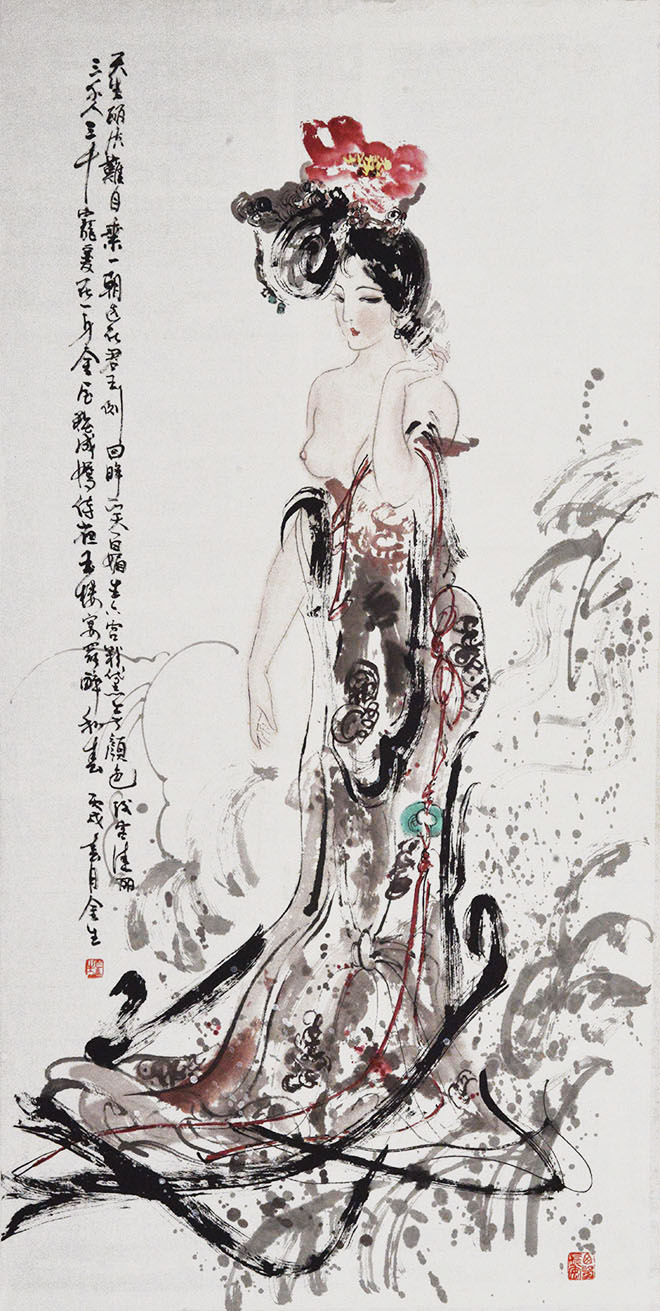 天生丽质難自棄一朝选在君王側回眸一笑百媚生六宫粉黛无顔色後宫佳丽
三千人三千寵愛在一身金屋妝成嬌侍夜玉楼宴罢醉和春 丙戌春月金生